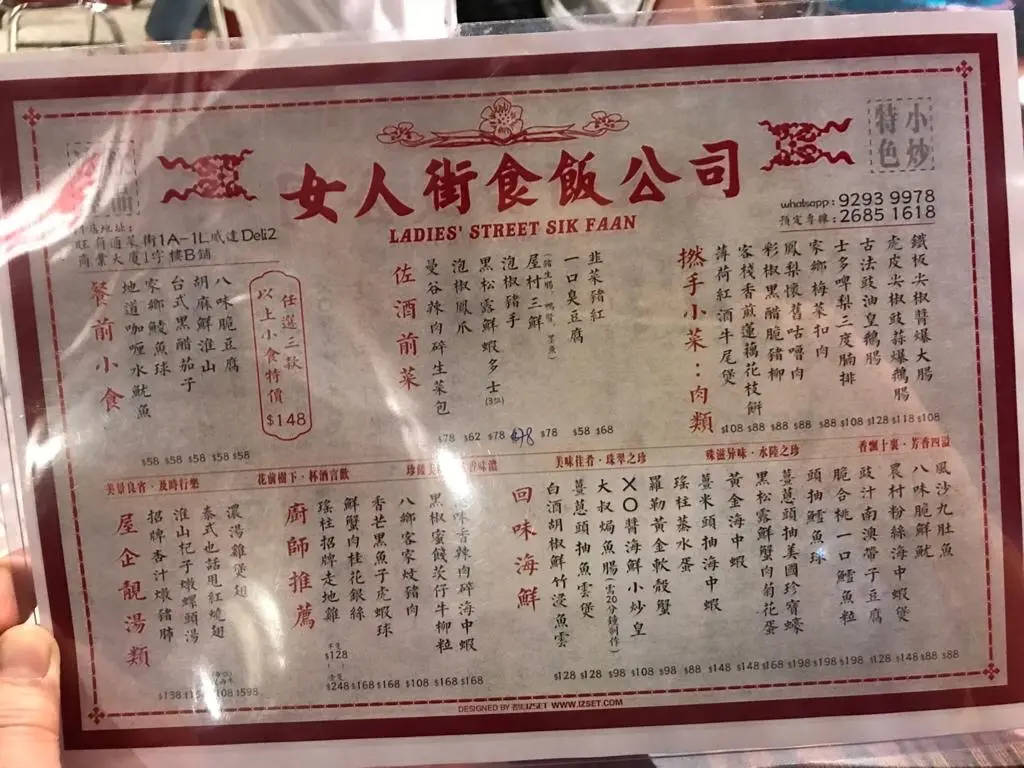 小炒
特色
女人街食飯公司
LADIES' STREET SIK FAAN
whatsapp : 9293 9978
預定專線 : 2685 1618
旺角通菜街1A-1L威達Deli2
商業大廈1字樓B舖
撚手小菜：肉類
鐵板尖椒醬爆大腸
虎皮尖椒豉蒜爆鵝腸
古法豉油皇鵝腸
士多啤梨三度腩排
家鄉梅菜扣肉
鳳梨懷舊咕嚕肉
彩椒黑醋脆豬柳
客棧香煎蓮藕花枝餅
薄荷紅酒牛尾煲
$108 $88 $88 $88 $88 $108 $128 $118 $108
佐酒前菜
韭菜豬紅
一口臭豆腐
屋村三鮮
泡椒豬手
黑松露鮮蝦多士(3件)
泡椒鳳爪
曼谷辣肉碎生菜包
$78 $62 $78 $78 $78 $58 $68
任選三款
以上小食特價
$148
餐前小食
八味脆豆腐
胡麻鮮淮山
台式黑醋茄子
家鄉鯪魚球
地道咖喱水魷魚
$58 $58 $58 $58 $58
美景良宵·及時行樂
花前樹下·杯酒言歡
美味佳肴·珠翠之珍
殊滋异味·水陸之珍
香飄十裏·芳香四溢
回味海鮮
風沙九肚魚
八味脆鮮魷
農村粉絲海中蝦煲
豉汁南澳帶子豆腐
脆合桃一口鱈魚粒
頭抽鱈魚球
薑蔥頭抽美國珍寶蠔
黑松露鮮蟹肉菊花蛋
黃金海中蝦
薑米頭抽海中蝦
瑤柱蒸水蛋
羅勒黃金軟殼蟹
XO醬海鮮小炒皇
大叔焗魚腸(需20分鐘制作)
薑蔥頭抽魚雲煲
白酒胡椒鮮竹浸魚雲
$128 $128 $98 $108 $98 $88 $148 $148 $168 $198 $198 $198 $128 $148 $88 $88
廚師推薦
黑椒蜜餞茨仔牛柳粒
八鄉客家炆豬肉
香芒黑魚子虎蝦球
鮮蟹肉桂花銀絲
瑤柱招牌走地雞
$128
$248 $168 $168 $108 $168 $168
屋企靚湯類
濃湯雞煲翅
泰式也話甩紅燒翅
淮山杞子燉螺頭湯
招牌杏汁燉豬肺
DESIGNED BY IZSET WWW.IZSET.COM